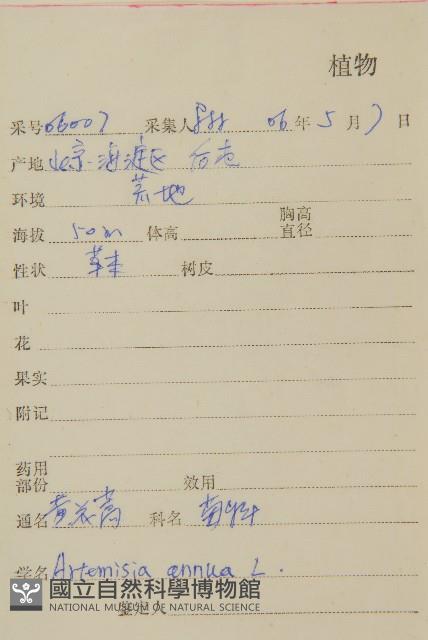 植物
采号 06007 采集人 06 年 5 月 7 日
产地 北京.海淀区
环境 荒地
海拔 50m 体高 胸高直径
性状 草本 树皮
叶
花
果实
附记
药用部份 效用
通名 黄花蒿 科名 菊科
学名 Artemisia annua L.
國立自然科學博物館
NATIONAL MUSEUM OF NATURAL SCIENCE
鉴定人